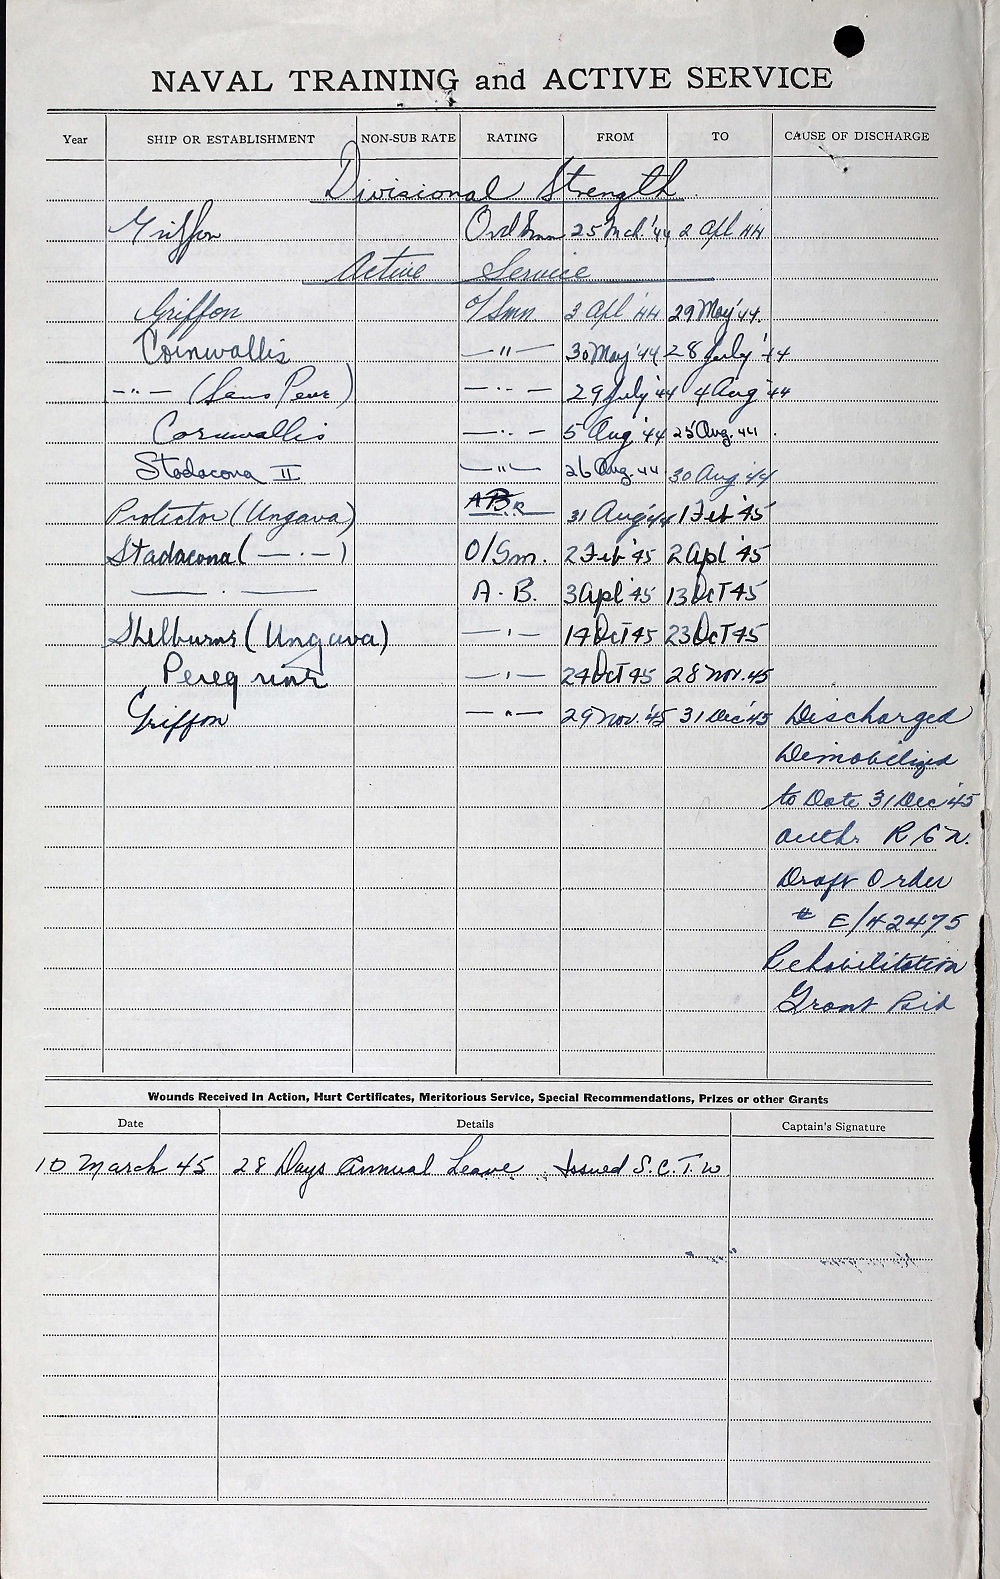 NAVAL TRAINING and ACTIVE SERVICE
Year SHIP OR ESTABLISHMENT NON-SUB RATE RATING FROM TO CAUSE OF DISCHARGE
Divisional Strength
Griffon Ord Smn 25 Mch '44 2 Apl 44
Active Service
Griffon O/Smn 3 Apl '44 29 May '44
Cornwallis —"— 30 May '44 28 July '44
-"- (Sans Peur) —"— 29 July '44 4 Aug '44
Cornwallis —"— 5 Aug '44 25 Aug. 44
Stadacona II —"— 26 Aug. 44 30 Aug '44
Protector (Ungava) 31 Aug '44 1 Feb '45
Stadacona ( —"— ) O/Sm. 2 Feb '45 2 Apl '45
—"— A.B. 3 Apl '45 13 Oct 45
Shelburne (Ungava) —"— 14 Oct 45 23 Oct 45
Peregrine —"— 24 Oct 45 28 Nov. 45
Griffon —"— 29 Nov. '45 31 Dec '45 Discharged
Demobilized
to Date 31 Dec '45
Auth. R C N.
Draft Order
# E/H2475
Rehabilitation
Grant Paid
Wounds Received In Action, Hurt Certificates, Meritorious Service, Special Recommendations, Prizes or other Grants
Date Details Captain's Signature
10 March 45 28 Days Annual Leave Issued S.C.T.W